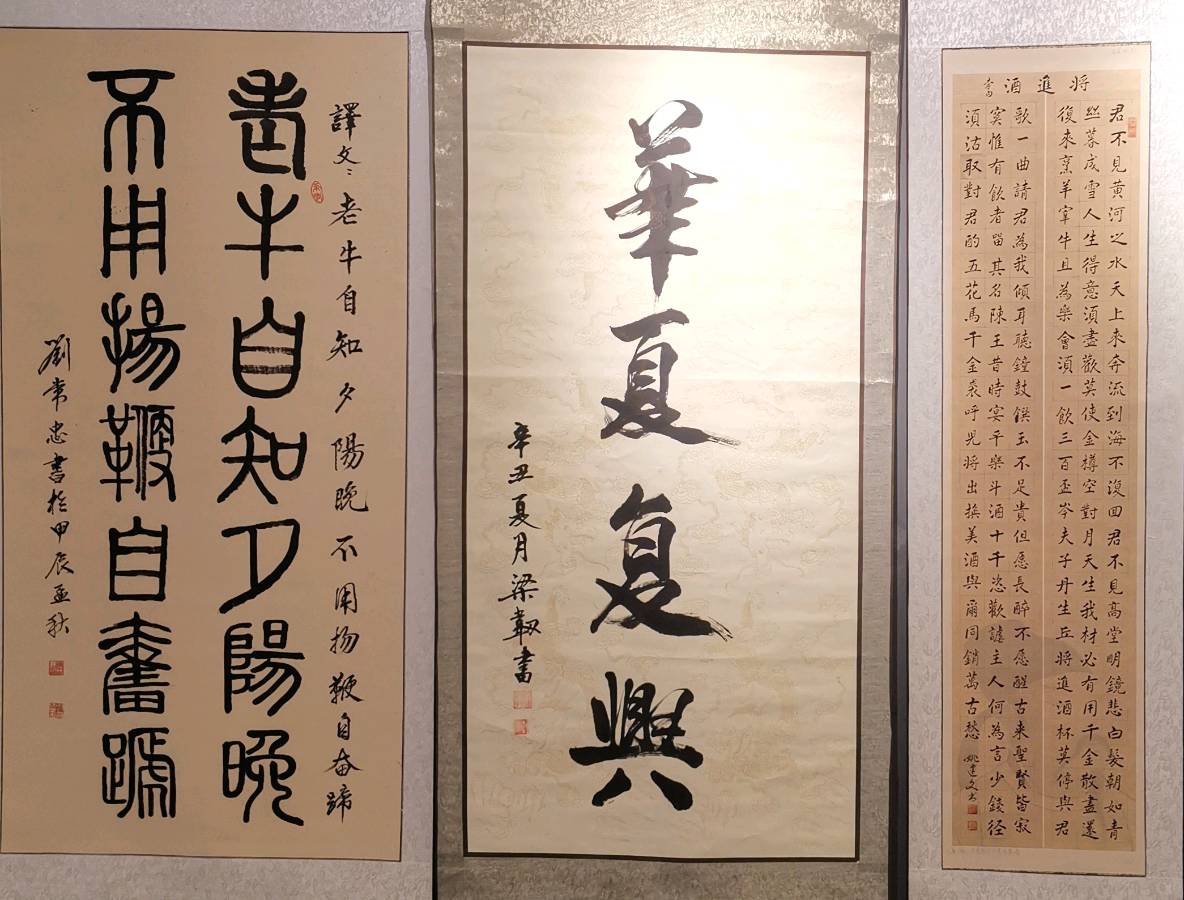 譯文: 老牛自知夕陽晚不用扬鞭自奋蹄
老牛自知夕陽晚
不用揚鞭自奮蹏
劉常忠書於甲辰孟秋
華夏复興
辛丑夏月梁韌書
將進酒 李白
君不見黃河之水天上來奔流到海不復回君不見高堂明鏡悲白髮朝如青
絲暮成雪人生得意須盡歡莫使金樽空對月天生我材必有用千金散盡還
復來烹羊宰牛且為樂會須一飲三百盃岑夫子丹生丘將進酒杯莫停與君
歌一曲請君為我傾耳聽鐘鼓饌玉不足貴但愿長醉不愿醒古来聖賢皆寂
寞惟有飲者畱其名陳王昔時宴平樂斗酒十千恣歡謔主人何為言少錢径
須沽取對君酌五花馬千金裘呼兒將出換美酒與爾同銷萬古愁